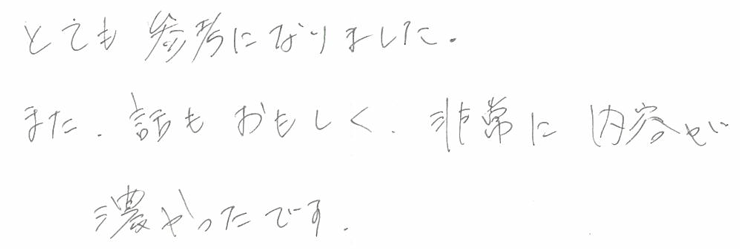 とても参考になりました。
また、話もおもしく、非常に内容が
濃かったです。